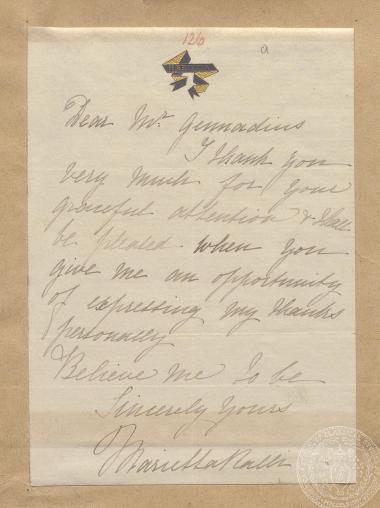 126
a
Dear Mr Gennadius
I thank you
very much for your
graceful attention & shall
be pleased when you
give me an opportunity
of expressing my thanks
personally
Believe me to be
Sincerely Yours
Marietta Ralli